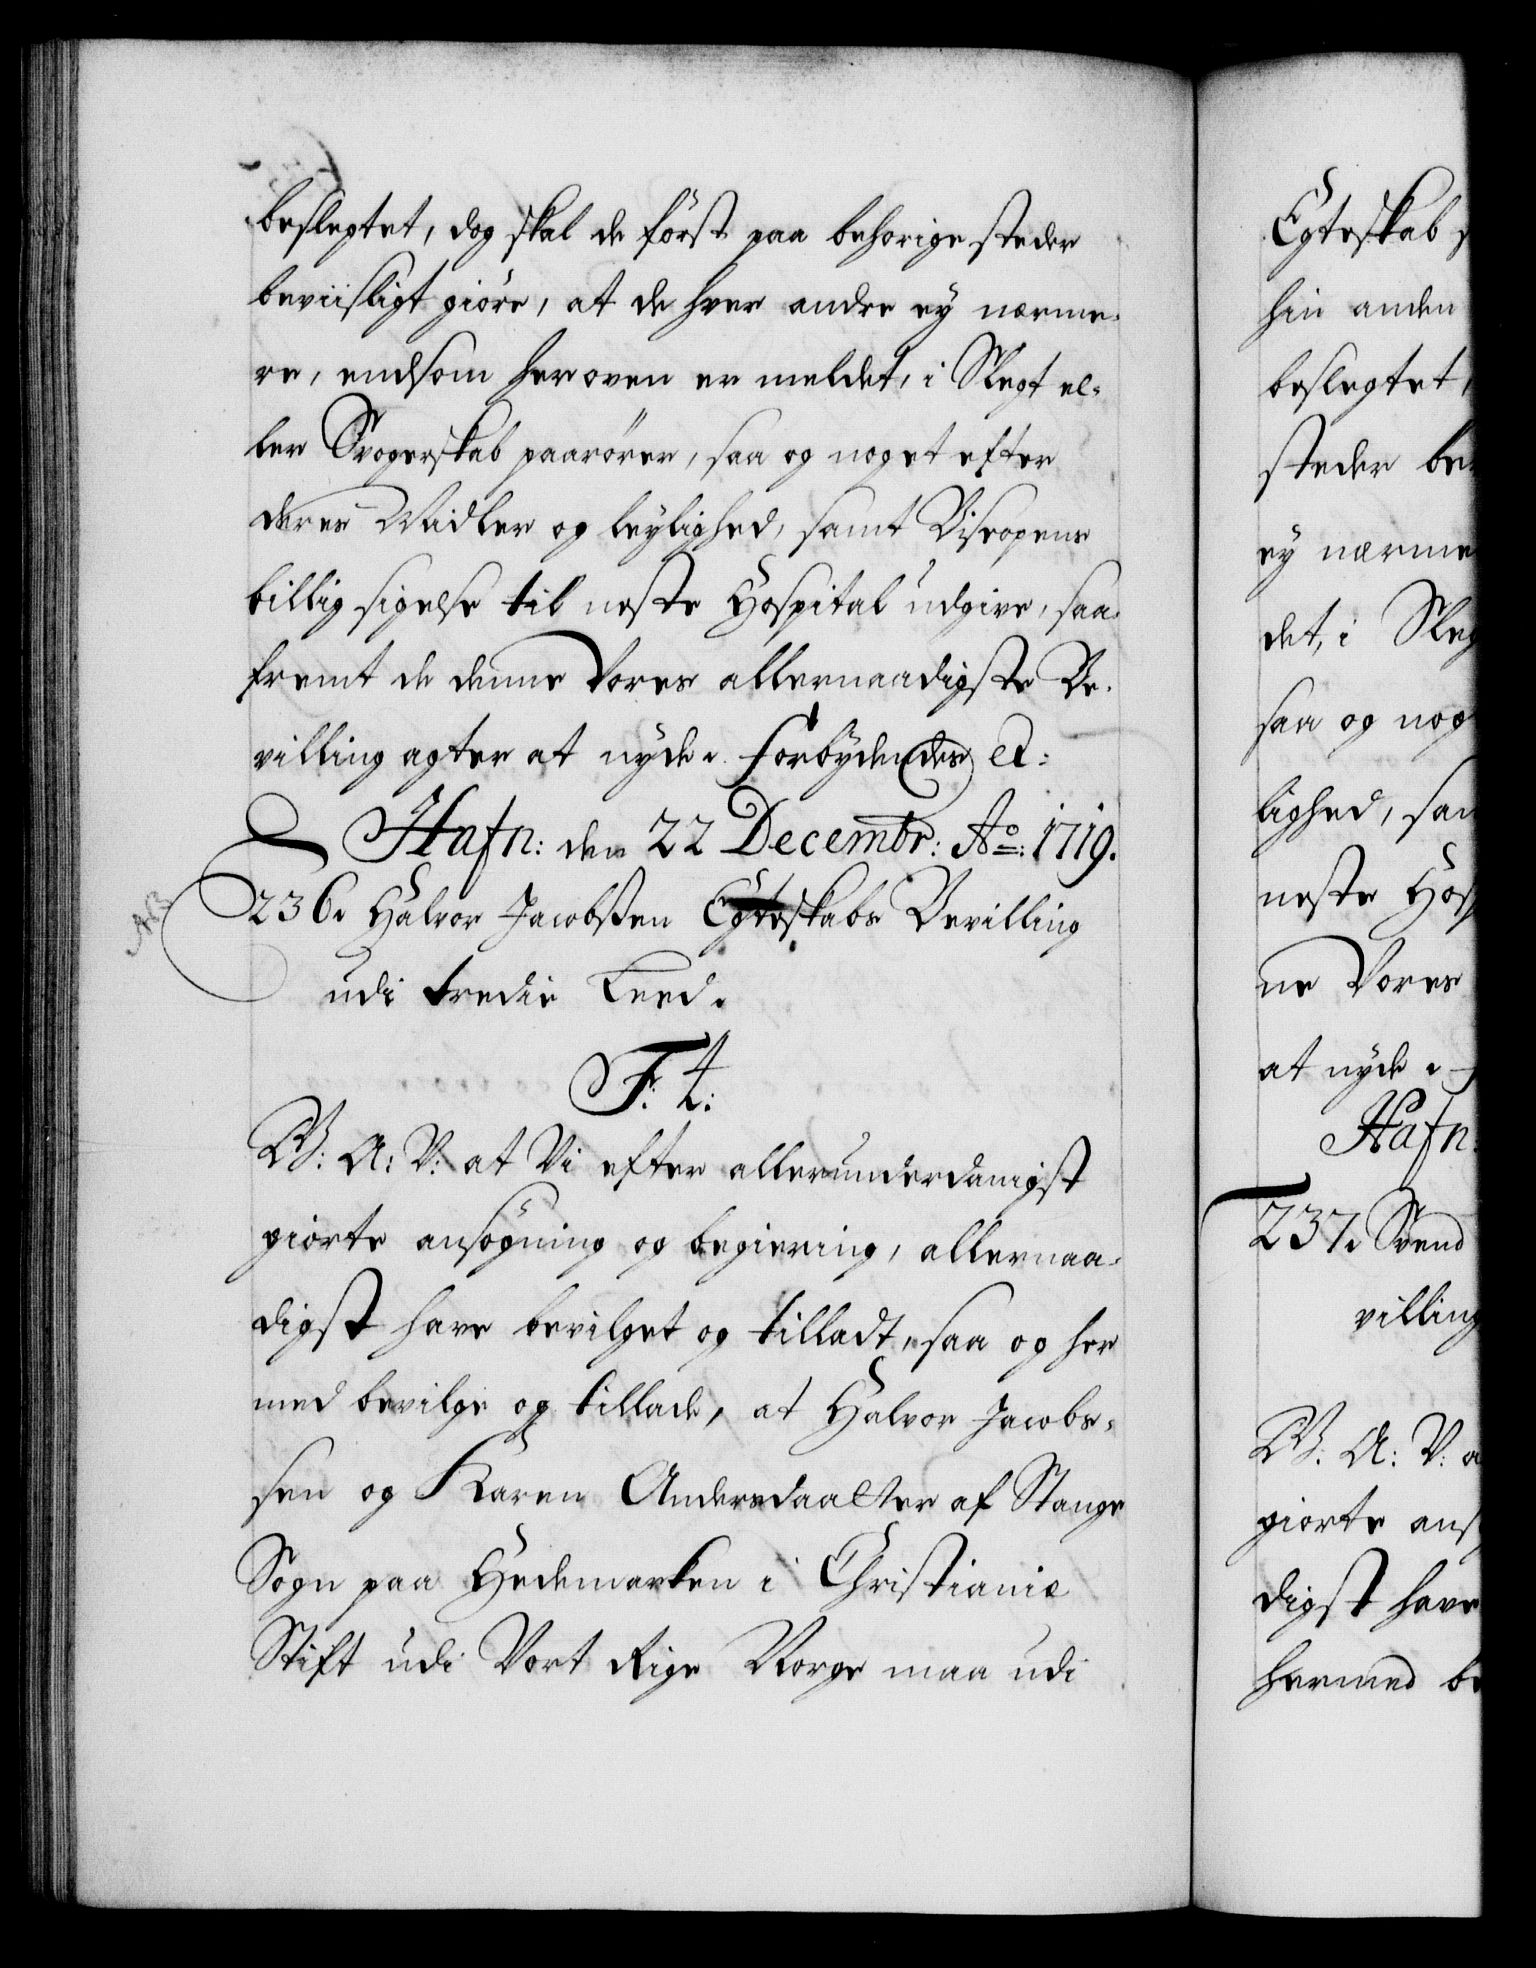 beslegtet, dog skal de först paa behorige steder
beviisligt giöre, at de hver andre ey nærme-
re, end som her oven er meldet, i Slegt el-
ler Svogerskab paarörer, saa og noget efter
deres Midler og leylighed, samt Biscopens
billig sigelse til neste Hospital udgive, saa-
fremt de denne Vores allernaadigste Be-
villing agter at nyde. Forbydendes et:
Hafn: den 22 Decembr: Ao: 1719.
NB
236. Halvor Jacobsten Egteskabs Bevilling
udi tredie Leed.
F: 4:
W: A: V: at Vi efter allerunderdanigst
giorte ansögning og begiering, allernaa-
digst have bevilget og tilladt, saa og her
med bevilge og tillade, at Halvor Jacobs-
sen og Karen Andersdaatter af Stange
Sogn paa Hedemarken i Christianiæ
Stift udi Vort Rige Norge maa udi
Egteskab
hin anden
beslegtet,
steder
ey nærme
det, i
saa og
lighed,
neste
ne Vores
at nyde.
Hafn:
237. Svend
villing
W: A: V:
giorte
digst have
hermed